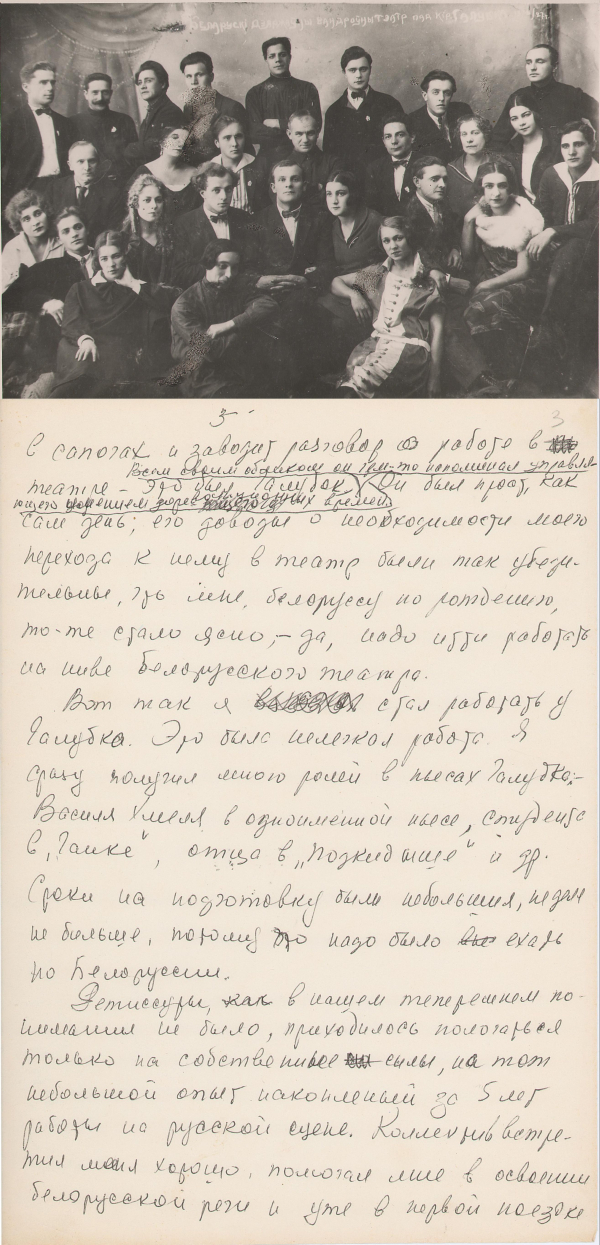 Беларускі Дзяржаўны Вандроўны тэатр пад кір. Галубка
3
3
в сапогах и заводит разговор о работе в
Всем своим обликом он чем-то напоминал управля-
театре – Это был Галубок. Он был прост, как
ющего имением дореволюционных времен
сам день; его доводы о необходимости моего
перехода к нему в театр были так убеди-
тельны, что мне, белоруссу по рождению,
то-же стало ясно, – да, надо итти работать
на ниве белорусского театра.
Вот так я стал работать у
Галубка. Это была нелегкая работа. Я
сразу получил много ролей в пьесах Галубка: –
Василя Хмеля в одноименной пьесе, студента
в „Ганке“, отца в „Подкидыше“ и др.
Сроки на подготовку были небольшия, недели
не больше, потому что надо было ехать
по Белоруссии.
Режиссуры, в нашем теперешнем по-
нимании не было, приходилось пологаться
только на собственные силы, на тот
небольшой опыт накопленый за 5 лет
работы на русской сцене. Коллектив встре-
тил меня хорошо, помогал мне в освоении
белорусской речи и уже в первой поездке